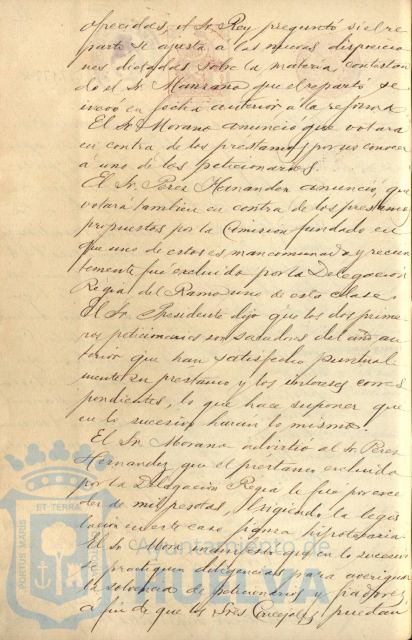 ofrecidas, el Sr. Rey preguntó si el re-
parto se ajusta a las nuevas disposicio-
nes dictadas sobre la materia, contestan-
do el Sr. Manzano que el reparto se
hizo en fecha anterior a la reforma.
El Sr. Morano anunció que votará
en contra de los prestamos por no conocer
a uno de los peticionarios.
El Sr. Perez Hernandez anunció, que
votará tambien en contra de los prestamos
propuestos por la Comision fundado en
que uno de estos es mancomunado y recien-
temente fue excluido por la Delegación
Regia del Ramo uno de esta clase.
El Sr. Presidente dijo que los dos prime-
ros peticionarios son sacadores del año an-
terior que han satisfecho puntual-
mente su prestamo y los intereses corres-
pondientes, lo que hace suponer que
en lo sucesivo haran lo mismo.
El Sr. Morano advirtió al Sr. Perez
Hernandez que el prestamo excluido
por la Delegación Regia lo fué por exce-
der de mil pesetas, exigiendo la legis-
lación en este caso hipotecaria
El Sr. Mora en lo sucesivo
se practiquen diligencias para averiguar
la solvencia de peticionarios y fiadores
a fin de que los Sres Concejales puedan
PORTUS MARIS ET TERRAE
Ayuntamiento de
HUELVA